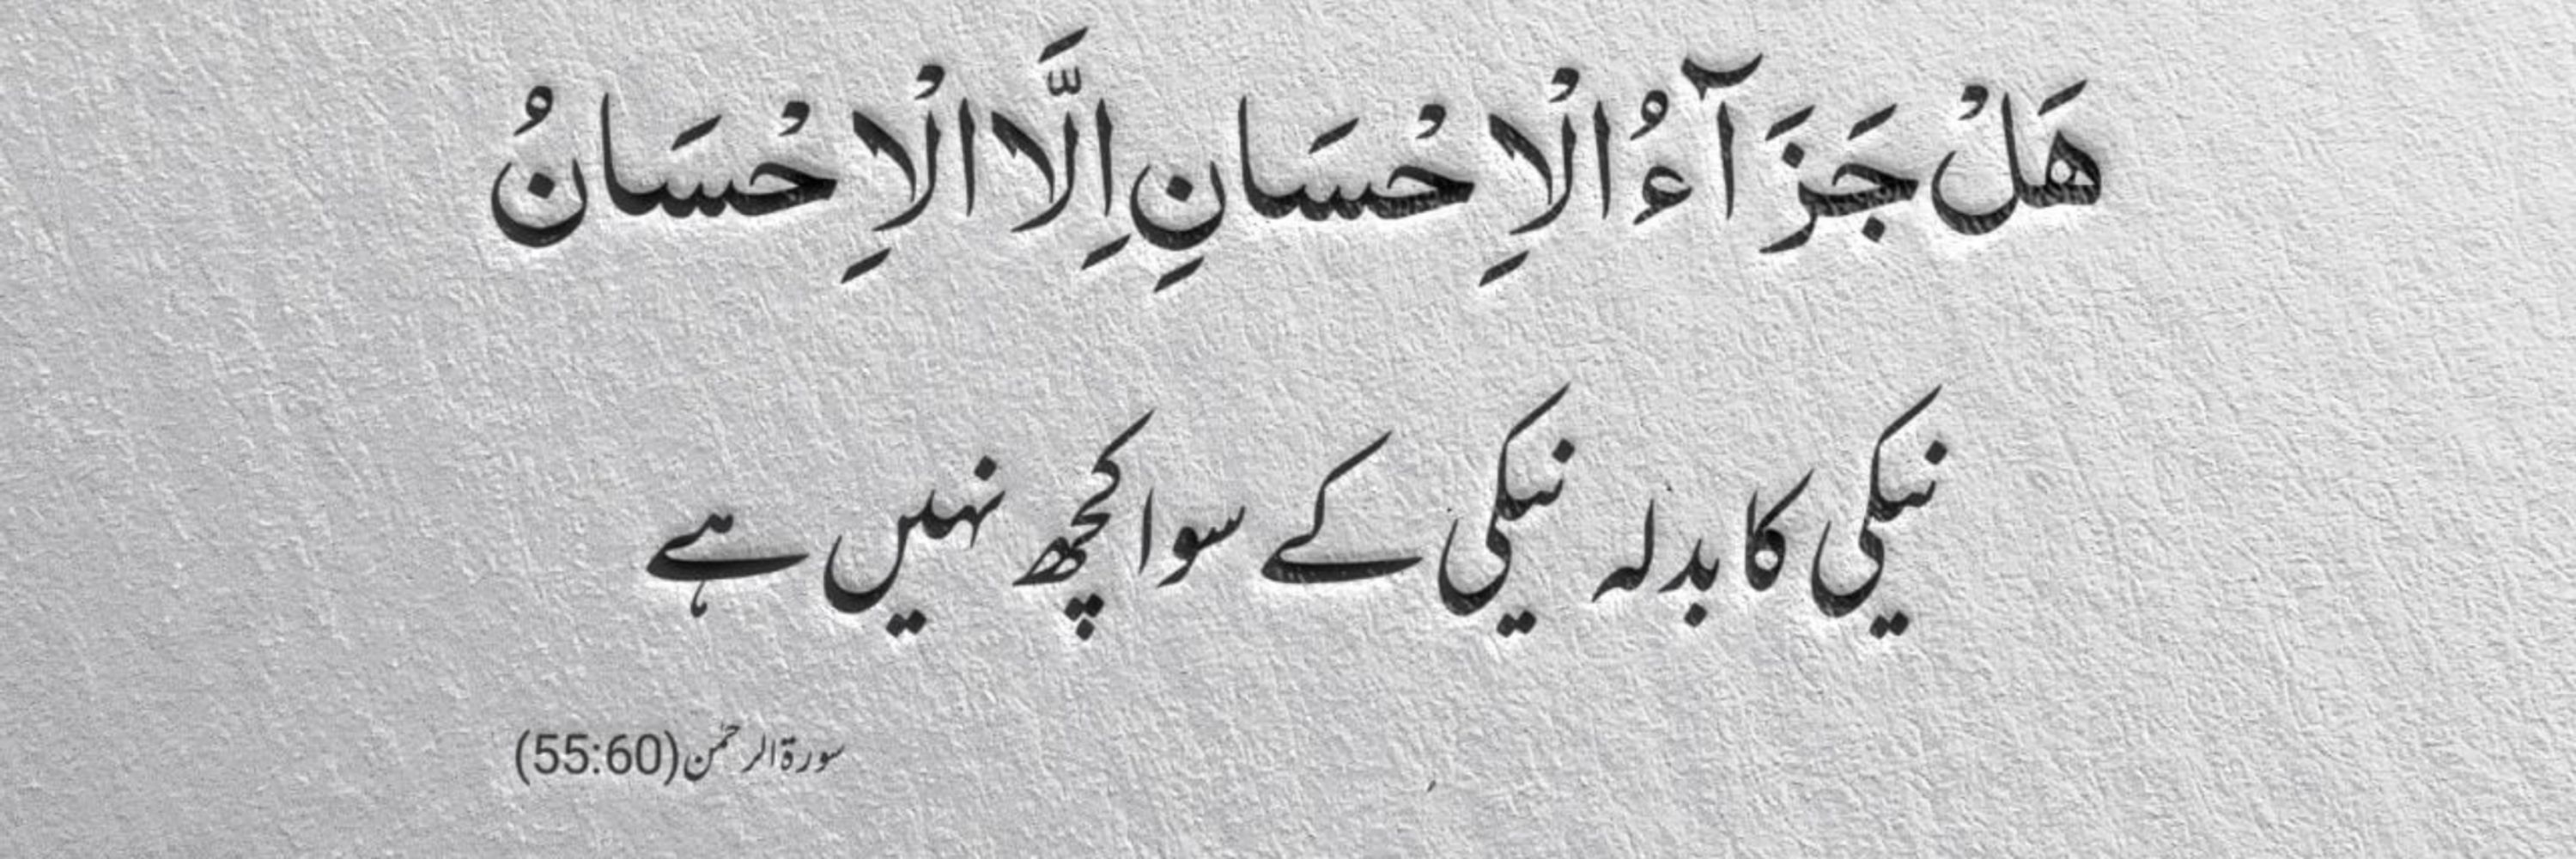 هَلْ جَزَآءُ الْاِحْسَانِ اِلَّا الْاِحْسَانُ
نیکی کا بدلہ نیکی کے سوا کچھ نہیں ہے
سورۃ الرحمٰن (55:60)